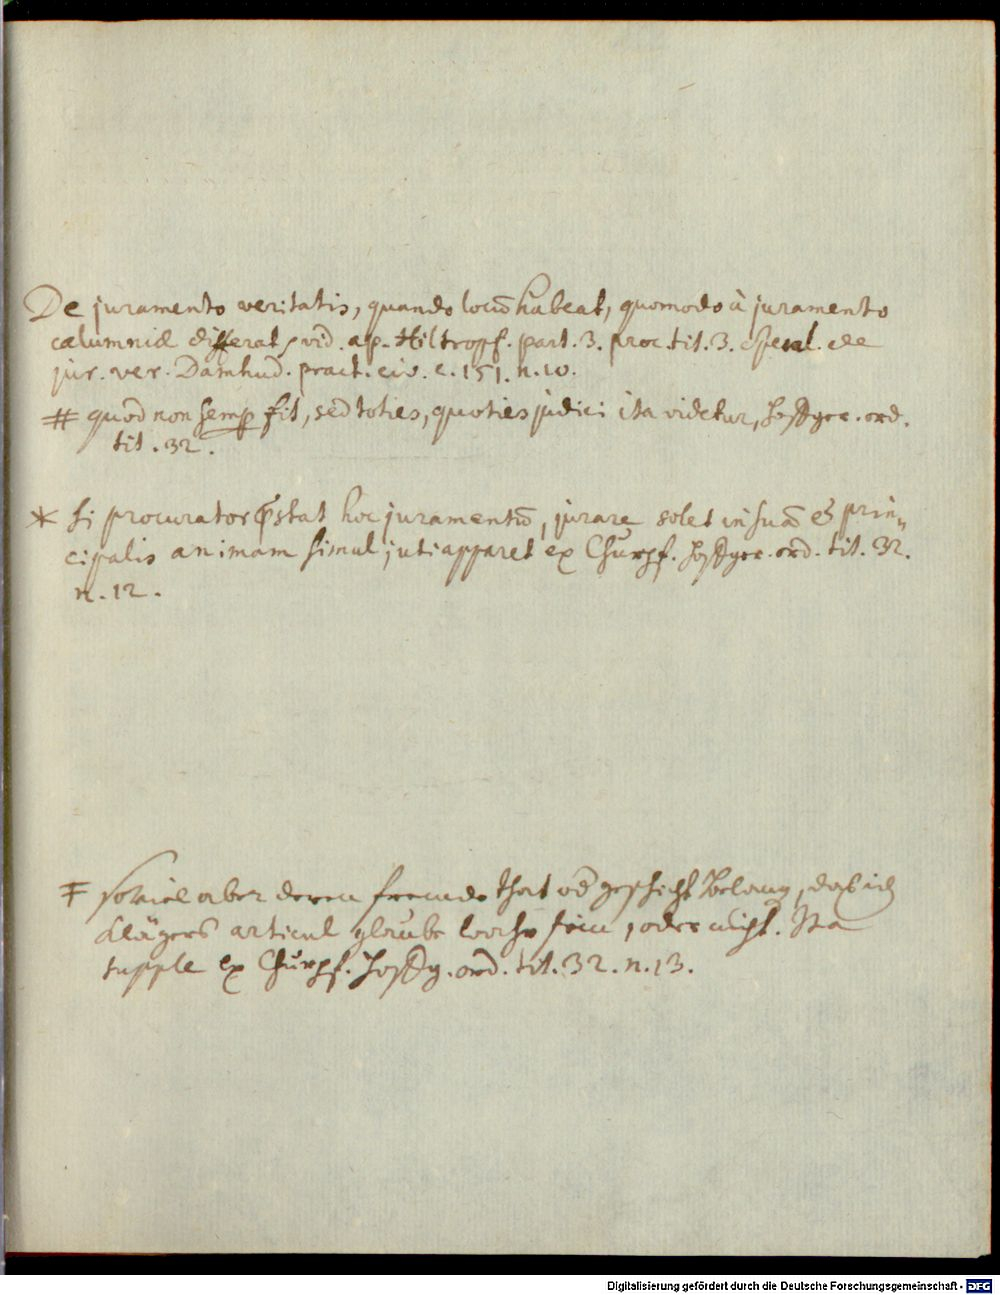 De juramento veritatis, quando locū habeat, quomodo à juramento
calumniæ differat, vid. ap. Hiltropf. part. 3. proc. tit. 3. de
jur. ver. Damhud. pract. civ. c. 151. n. 10.
# quod non semp fit, sed toties, quoties judici ita videtur, Hoffger. ord.
tit. 32.
* si procurator p̄stat hoc juramentū, jurare solet in suā & prin„
cipalis animam simul, uti apparet ex Churpf. Hoffger. ord. tit. 32.
n. 12.
ŧ soviel aber deren frembde that od geschicht belang, daß ich
Klägers articul glaube wahr sein, oder nicht. Ita
supple ex Churpf. Hoffg. ord. tit. 32. n. 13.
Digitalisierung gefördert durch die Deutsche Forschungsgemeinschaft - DFG